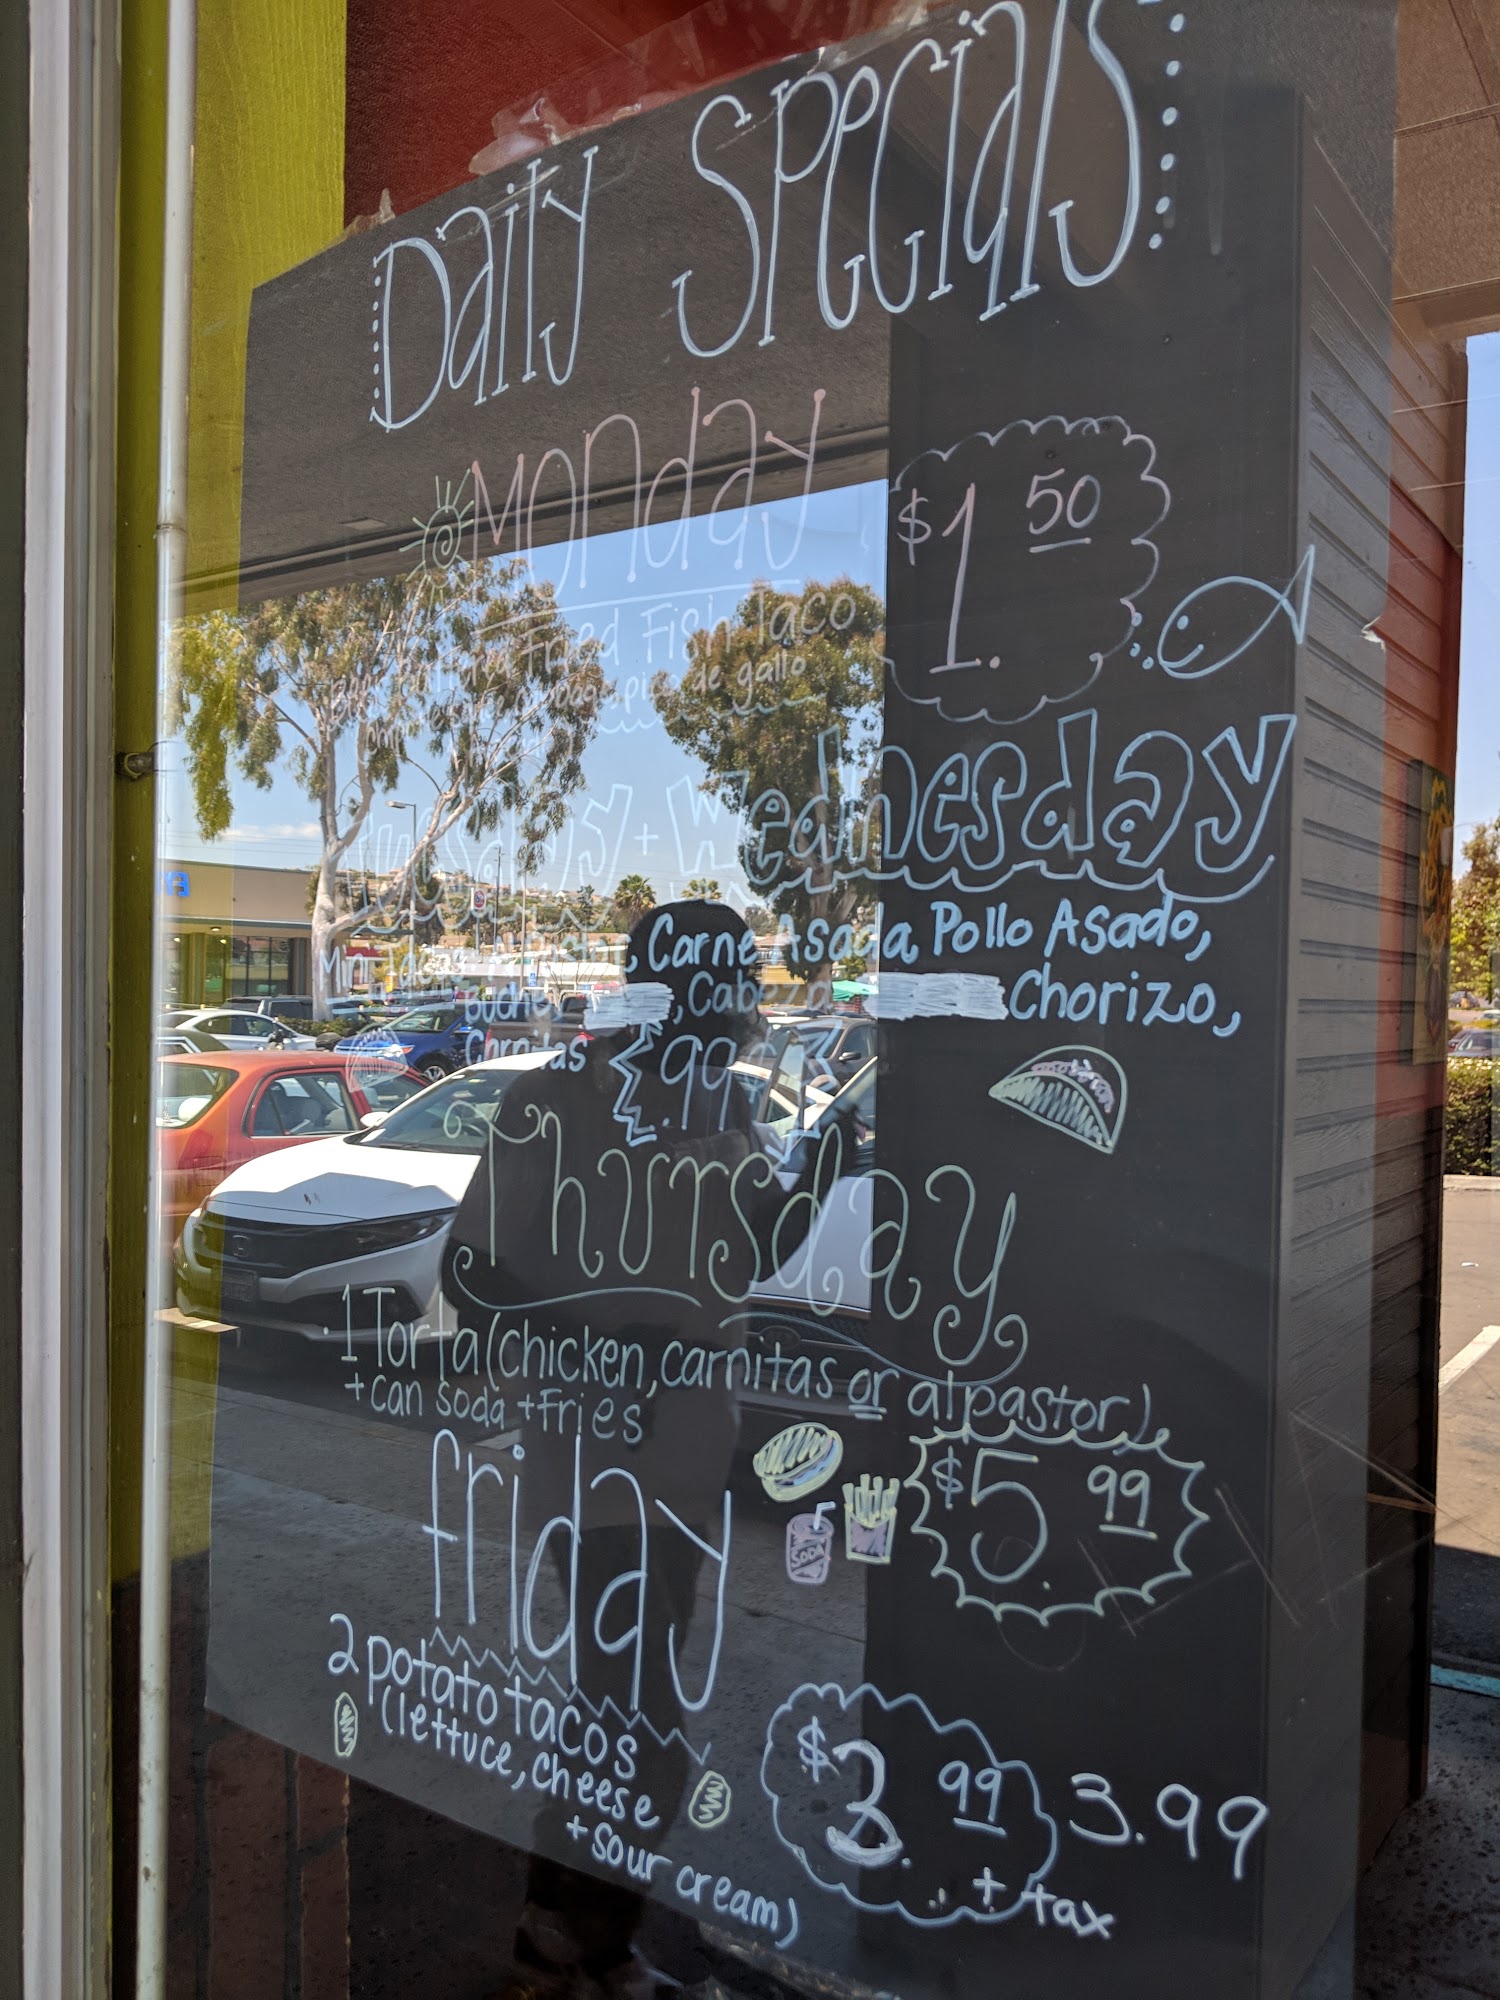 Daily Specials
Monday
$1.50
Beer Battered Fried Fish Taco
cabbage, pico de gallo
Tuesday + Wednesday
Mini Tacos Al Pastor, Carne Asada, Pollo Asado,
Buche, , Cabeza Chorizo,
Carnitas .99¢
Thursday
1 Torta (chicken, carnitas or al pastor)
+ can soda + Fries
SODA
$5.99
friday
2 potato tacos
(lettuce, cheese
+ sour cream)
$3.99 3.99
+ tax